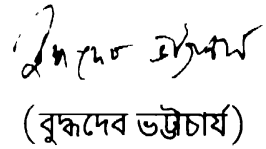 বুদ্ধদেব ভট্টাচার্য
(বুদ্ধদেব ভট্টাচার্য)